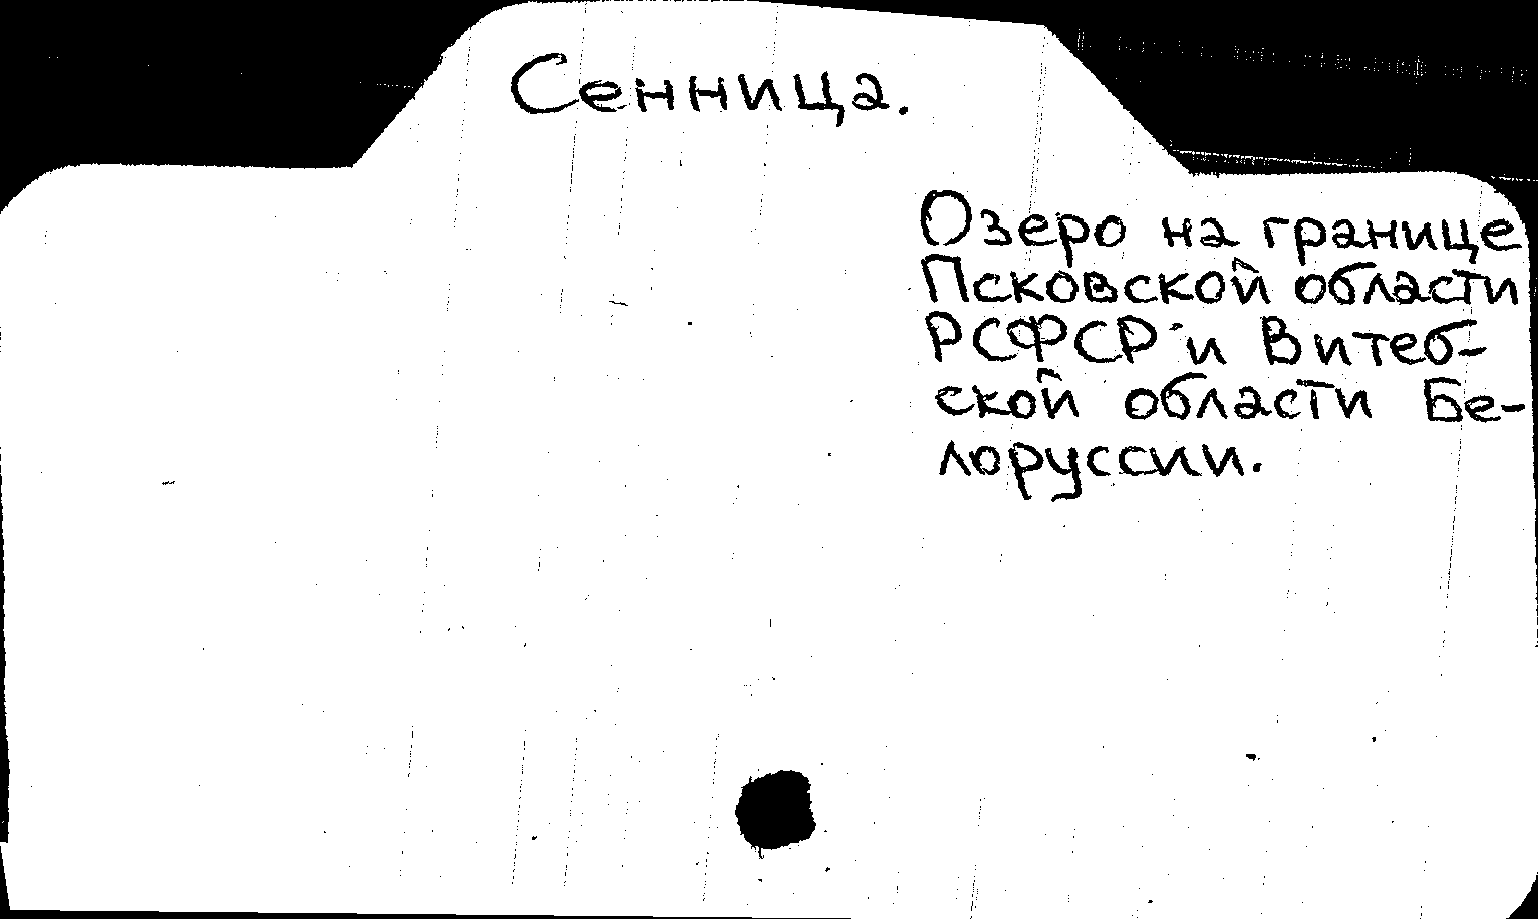 Сенница.
Озеро на границе
Псковской области
РСФСР и Витеб-
ской области Бе-
лоруссии.